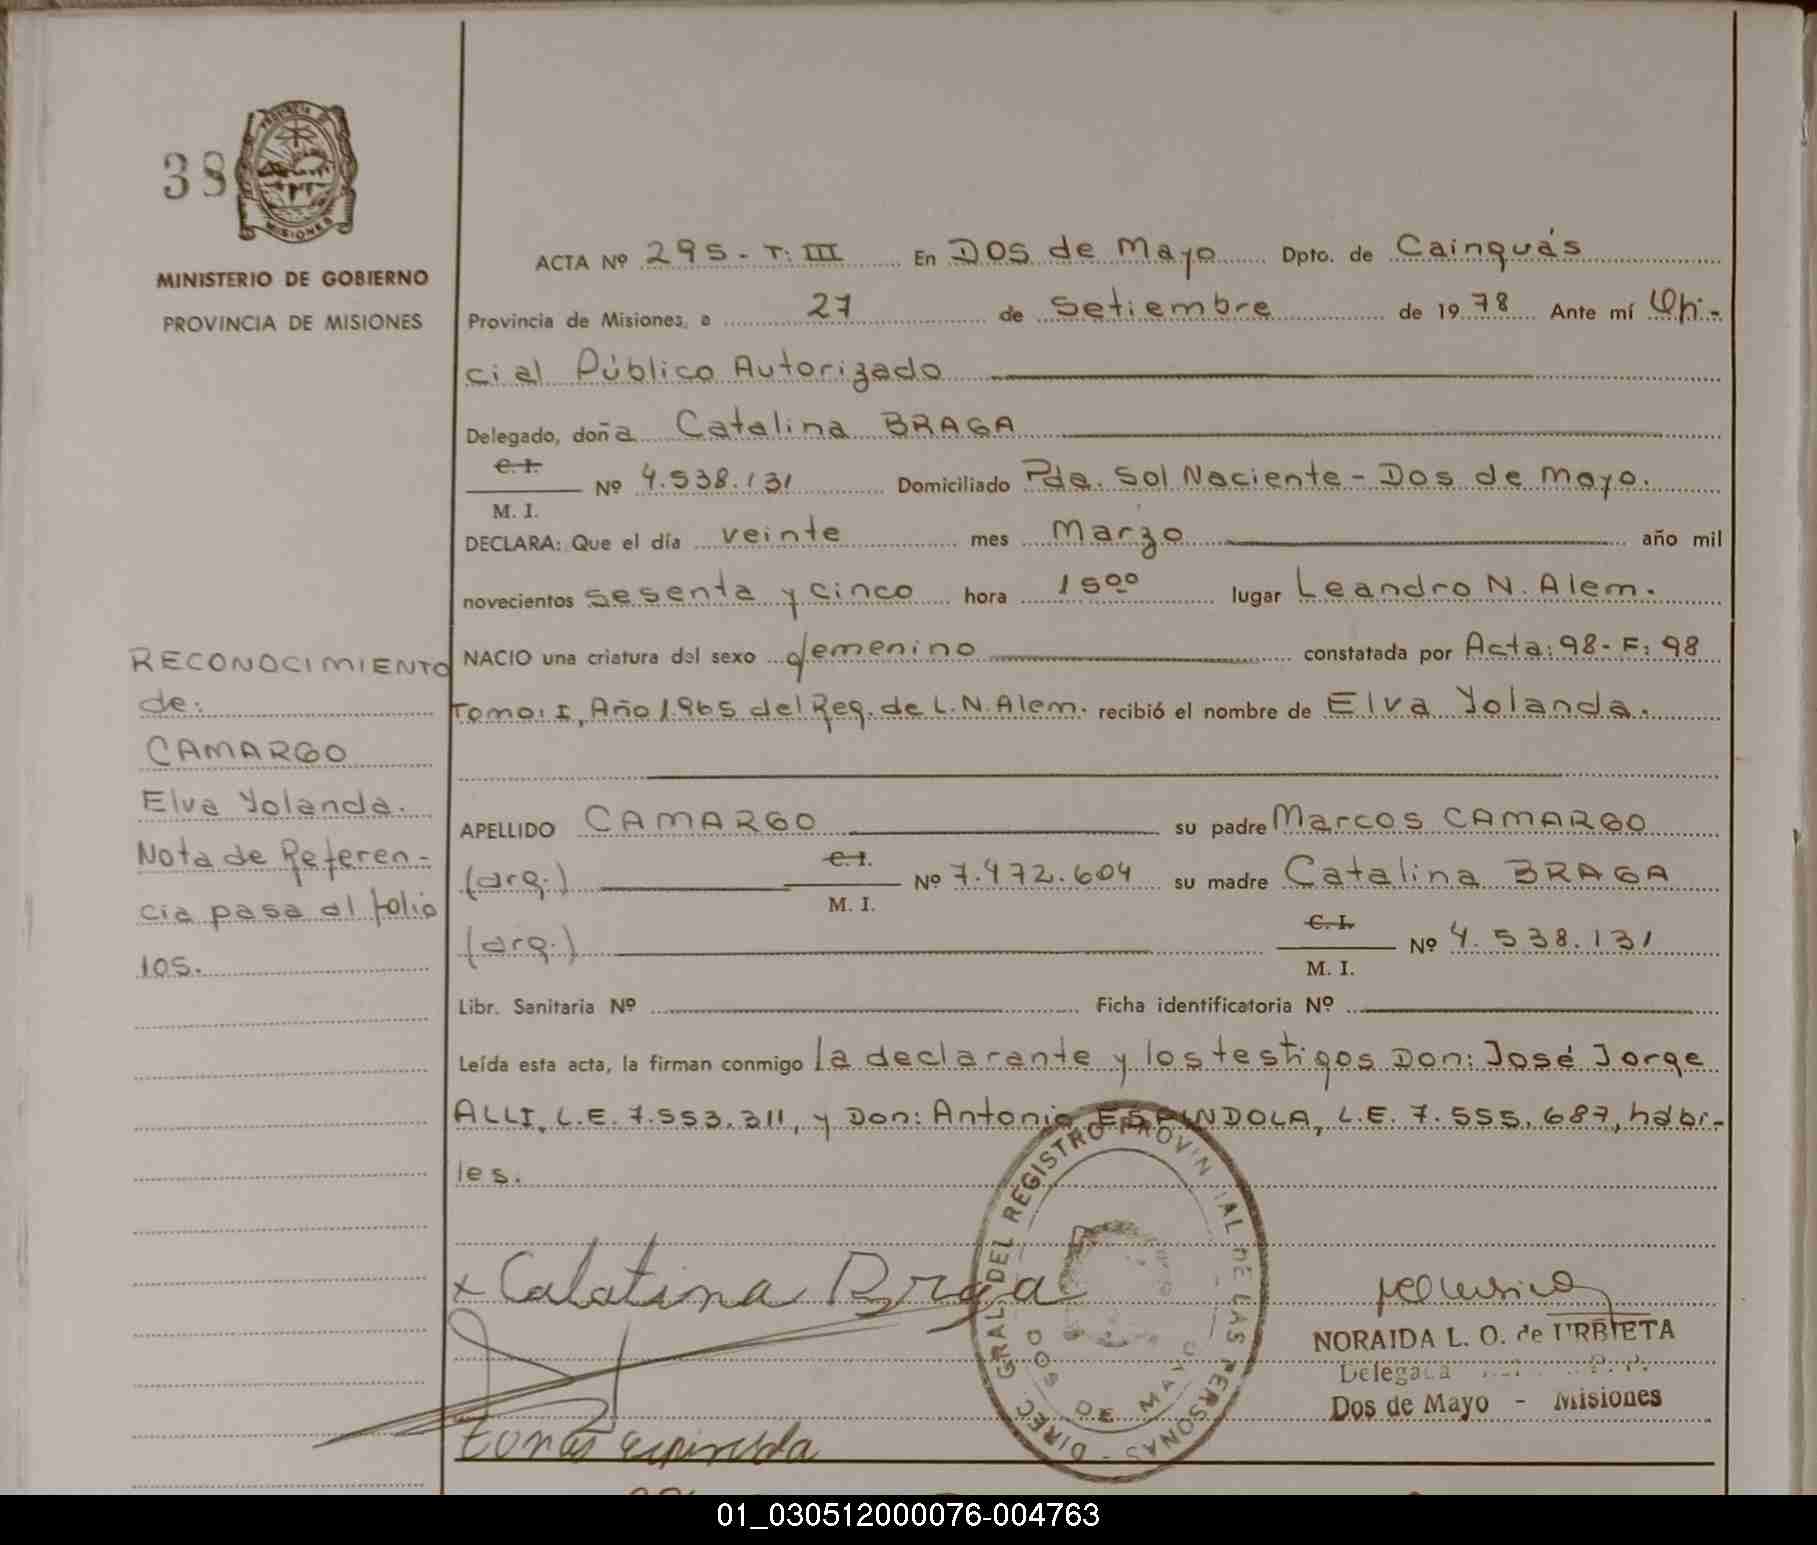 38
PROVINCIA DE
MISIONES
MINISTERIO DE GOBIERNO
PROVINCIA DE MISIONES
RECONOCIMIENTO
de:
CAMARGO
Elva Yolanda.
Nota de Referen-
cia pasa al folio
105.
ACTA Nº 295 - T: III En DOS de Mayo Dpto. de Cainguás
Provincia de Misiones, a 27 de Setiembre de 1978 Ante mí Ofi-
cial Público Autorizado
Delegado, doña Catalina BRAGA
C.I.
M. I. Nº 4.538.131 Domiciliado Pda. Sol Naciente - Dos de Mayo.
DECLARA: Que el día veinte mes Marzo año mil
novecientos sesenta y cinco hora 15⁰⁰ lugar Leandro N. Alem.
NACIO una criatura del sexo femenino constatada por Acta: 98 - F: 98
Tomo: I, Año 1.965 del Reg. de L.N. Alem. recibió el nombre de Elva Yolanda.
APELLIDO CAMARGO su padre Marcos CAMARGO
(arg.) C.I.
M. I. Nº 7.472.604 su madre Catalina BRAGA
(arg.) C.I.
M. I. Nº 4.538.131
Libr. Sanitaria Nº Ficha identificatoria Nº
Leída esta acta, la firman conmigo la declarante y los testigos Don: José Jorge
ALLI, L.E. 7.553.311, y Don: Antonio ESPINDOLA, L.E. 7.555.687, hábi-
les.
x Calatina Braga
DIREC. GRAL. DEL REGISTRO PROVINCIAL DE LAS PERSONAS
DOS DE MAYO
NORAIDA L. O. de URBIETA
Delegada
Dos de Mayo - Misiones
01_030512000076-004763